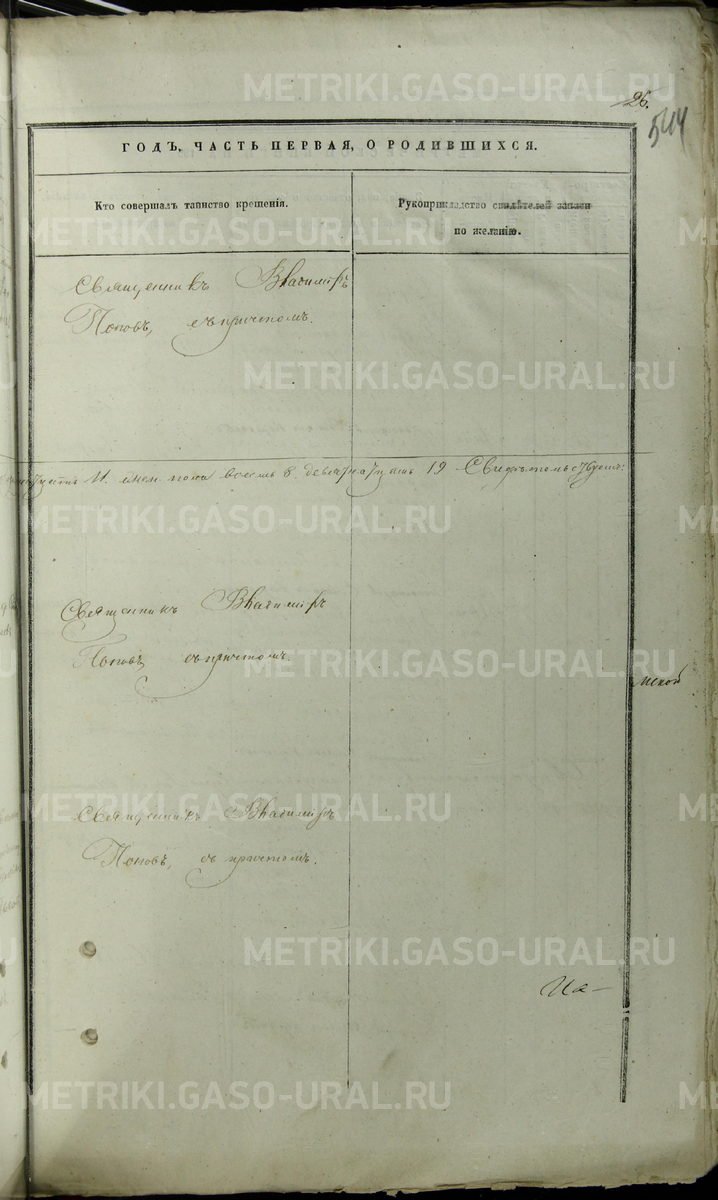 METRIKI.GASO-URAL.RU
26.
544
ГОДЪ, ЧАСТЬ ПЕРВАЯ, О РОДИВШИХСЯ.
Кто совершалъ таинство крещенія.
Рукоприкладство свидѣтелей записи
по желанію.
Священникъ Владиміръ
Поповъ, съ причтомъ.
METRIKI.GASO-URAL.RU
METRIKI.GASO-URAL.RU
11. женск. пола восемь 8. девятнадцать 19
METRIKI.GASO-URAL.RU
Священникъ Владиміръ
Поповъ съ причтомъ.
METRIKI.GASO-URAL.RU
мской
Священникъ Владиміръ
METRIKI.GASO-URAL.RU
Поповъ, съ причтомъ.
METRIKI.GASO-URAL.RU
METRIKI.GASO-URAL.RU